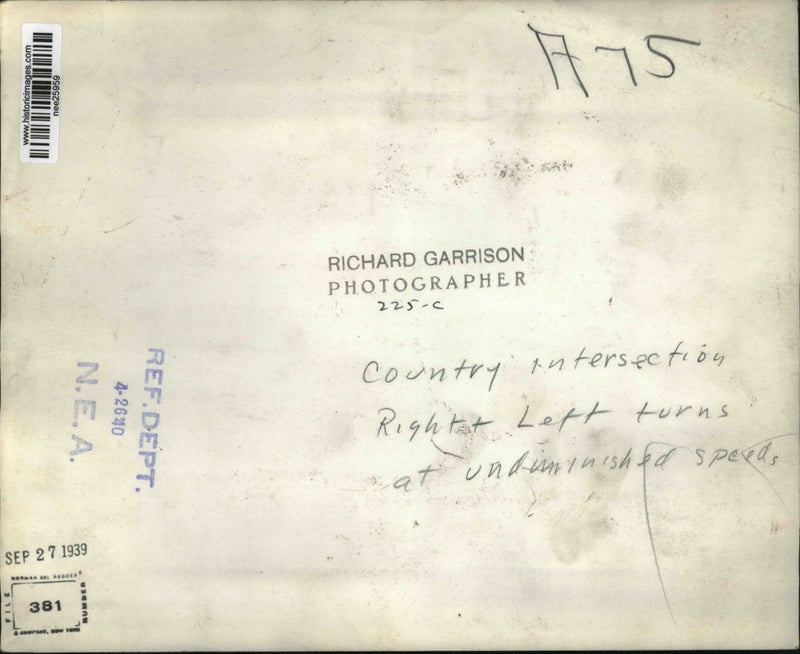 www.historicimages.com
nee25959
A75
RICHARD GARRISON
PHOTOGRAPHER
225-C
Country intersection
Right + Left turns
at undiminished speeds
REF. DEPT.
4-26-40
N.E.A.
SEP 27 1939
NORMAN BEL GEDDES
FILE
381
NUMBER
& COMPANY, NEW YORK